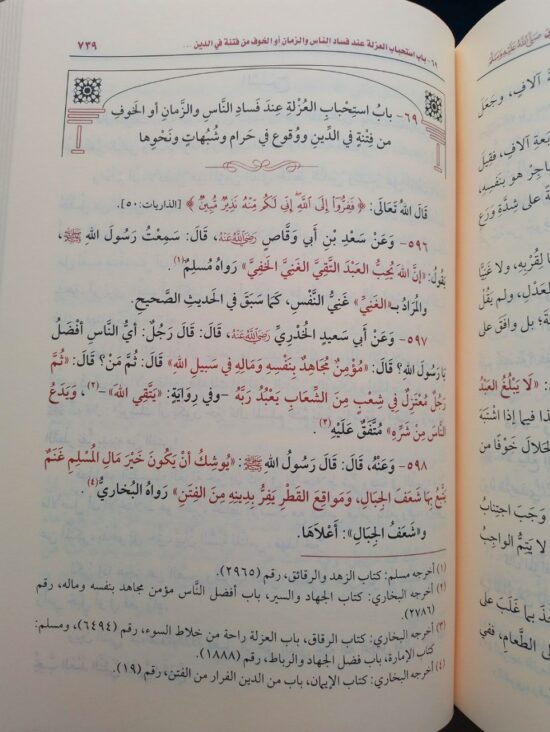 ٦٩- باب استحباب العزلة عند فساد الناس والزمان أو الخوف من فتنة في الدين ...
٧٣٩
٦٩- بابُ استِحْبابِ العُزْلَةِ عِندَ فَسادِ النَّاسِ والزَّمانِ أو الخَوفِ
من فِتْنَةٍ في الدِّينِ ووُقوعٍ في حَرامٍ وشُبُهاتٍ ونَحْوِها
قَالَ اللهُ تَعَالَى: ﴿ فَفِرُّوٓا۟ إِلَى ٱللَّهِ ۖ إِنِّى لَكُم مِّنْهُ نَذِيرٌ مُّبِينٌ ﴾ [الذاريات: ٥٠].
٥٩٦- وَعَنْ سَعْدِ بْنِ أَبي وَقَّاصٍ رَضِيَ اللَّهُ عَنْهُ، قَالَ: سَمِعْتُ رَسُولَ اللهِ ﷺ،
يَقُولُ: «إِنَّ اللهَ يُحِبُّ العَبْدَ التَّقِيَّ الغَنِيَّ الخَفِيَّ» رَوَاهُ مُسلِمٌ(١).
والمُرَادُ بـ«الغَنِيِّ» غَنِيُّ النَّفْسِ، كَمَا سَبَقَ في الحَديثِ الصَّحيحِ.
٥٩٧- وَعَنْ أَبي سَعيدٍ الخُدْرِيِّ رَضِيَ اللَّهُ عَنْهُ، قَالَ: قَالَ رَجُلٌ: أَيُّ النَّاسِ أَفْضَلُ
يَا رَسُولَ اللهِ؟ قَالَ: «مُؤْمِنٌ مُجَاهِدٌ بِنَفْسِهِ وَمَالِهِ في سَبيلِ اللهِ» قَالَ: ثُمَّ مَنْ؟ قَالَ: «ثُمَّ
رَجُلٌ مُعْتَزِلٌ في شِعْبٍ مِنَ الشِّعَابِ يَعْبُدُ رَبَّهُ –وفي رِوَايَةٍ: «يَتَّقِي اللهَ»–(٢)، وَيَدَعُ
النَّاسَ مِنْ شَرِّهِ» مُتَّفَقٌ عَلَيْهِ(٣).
٥٩٨- وَعَنْهُ، قَالَ: قَالَ رَسُولُ اللهِ ﷺ: «يُوشِكُ أَنْ يَكُونَ خَيْرَ مَالِ المُسْلِمِ غَنَمٌ
يَتَّبِعُ بِهَا شَعَفَ الجِبَالِ، وَمَواقِعَ القَطْرِ يَفِرُّ بِدِينِهِ مِنَ الفِتَنِ» رَوَاهُ البُخاريُّ(٤).
و«شَعَفُ الجِبَالِ»: أَعْلَاهَا.
(١) أخرجه مسلم: كتاب الزهد والرقائق، رقم (٢٩٦٥).
(٢) أخرجه البخاري: كتاب الجهاد والسير، باب أفضل النَّاس مؤمن مجاهد بنفسه وماله، رقم
(٢٧٨٦).
(٣) أخرجه البخاري: كتاب الرقاق، باب العزلة راحة من خلاط السوء، رقم (٦٤٩٤)، ومسلم:
كتاب الإمارة، باب فضل الجهاد والرباط، رقم (١٨٨٨).
(٤) أخرجه البخاري: كتاب الإيمان، باب من الدين الفرار من الفتن، رقم (١٩).
آلافٍ، وجَعَلَ
آلافٍ، فقِيلَ
هو بنَفْسِهِ،
على شِدَّةِ وَرَعِ
لِقُرْبِهِ، ولا غَنِيًّا
ولم يَقُلْ
بل وافَقَ على
«لَا يَبْلُغُ العَبْدُ
فيما إذا اشْتَبَهَ
الحَلَالِ خَوْفًا من
وَجَبَ اجتِنابُ
لا يَتِمُّ الواجِبُ
بما غَلَبَ على
الطَّعامِ، ففي